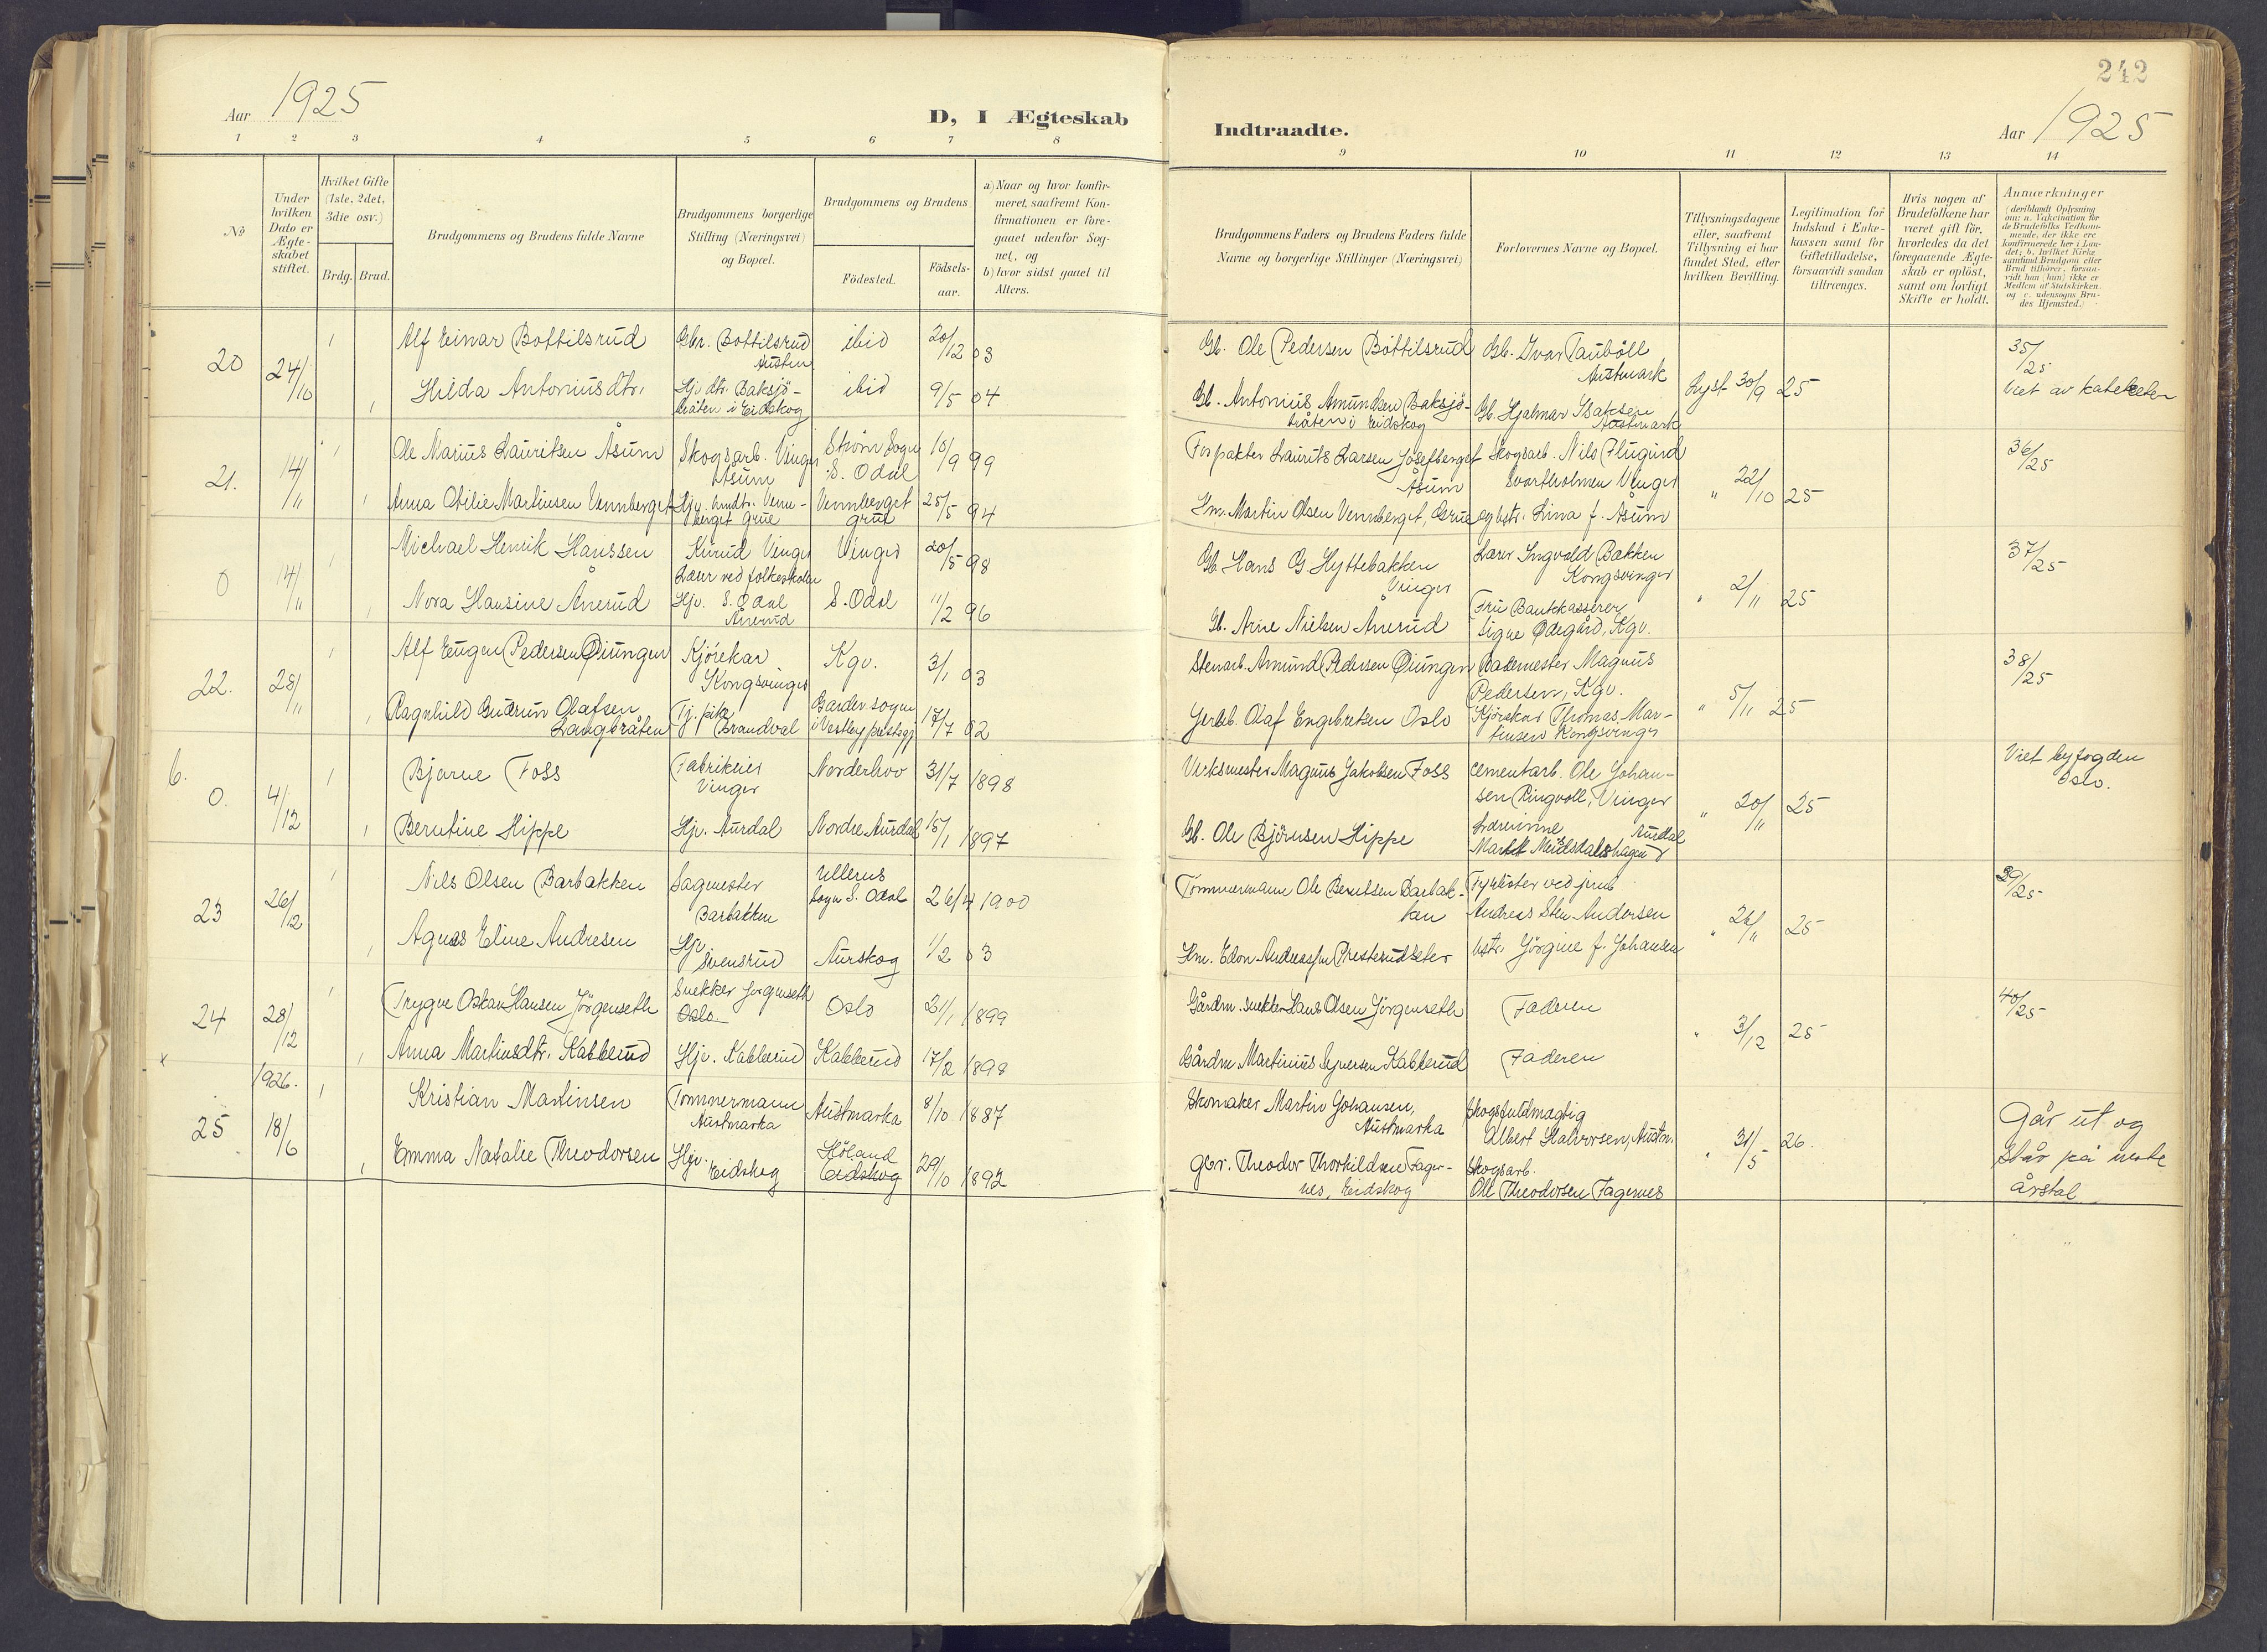 242
Aar 1925
D, I Ægteskab
Indtraadte.
Aar 1925
1 2 3 4 5 6 7 8
9 10 11 12 13 14
No
Under hvilken Dato er Ægteskabet stiftet.
Hvilket Gifte (1ste, 2det, 3die osv.)
Brdg. Brud.
Brudgommens og Brudens fulde Navne
Brudgommens borgerlige Stilling (Næringsvei) og Bopæl.
Brudgommens og Brudens
Födested.
Födsels-aar.
a) Naar og hvor konfir-
meret, saafremt Kon-
firmationen er fore-
gaaet udenfor Sog-
net, og
b) hvor sidst gaaet til
Alters.
Brudgommens Faders og Brudens Faders fulde
Navne og borgerlige Stillinger (Næringsvei)
Forlovernes Navne og Bopæl.
Tillysningsdagene
eller, saafremt
Tillysning ei har
fundet Sted, efter
hvilken Bevilling.
Legitimation for
Indskud i Enke-
kassen samt for
Giftetilladelse,
forsaavidt saadan
tiltrænges.
Hvis nogen af
Brudefolkene har
været gift för,
hvorledes da det
foregaaende Ægte-
skab er oplöst,
samt om lovligt
Skifte er holdt.
Anmerkninger
(deriblandt Oplysning
om: a. Vakcination for
de Brudefolks Vedkom-
mende, der ikke ere
konfirmerede her i Lan-
det; b. hvilket Kirke-
samfund Brudgom eller
Brud tilhører, forsaa-
vidt han (hun) ikke er
Medlem af Statskirken.
og c. udensogns Bru-
des Hjemsted.)
20 24/10 1 Alf Einar Bottilsrud Gbr. Bottilsrud Austm ibid 20/12 03 Gb. Ole Pedersen Bottilsrud Gb. Ivar Tauböll Austmark 35/25
1 Hilda Antoniusdtr. Hjv. dtr. Baksjö-
bråten i Eidskog ibid 9/5 04 Gb. Antonius Amundsen Baksjö-
bråten i Eidskog Gb. Hjalmar Isaksen Austmark Lyst 30/9 25 Viet av kateketen
21. 14/11 1 Ole Marius Lauritsen Åsum Skogsarb. Vinger Åsum Ström Sogn S. Odal 10/9 99 Forpakter Laurits Larsen Josefberget Åsum Skogsarb. Nils Flugind Svartholmen Vinger 36/25
1 Anna Otilie Martinsen Vennberget Hjv. hmdtr. Venn-
berget Grue Vennberget Grue 25/5 94 Hm. Martin Olsen Vennberget, Grue og hstr. Lina f. Åsum " 22/10 25
0 14/11 1 Michael Henrik Hanssen Kurud Vinger Lærer ved folkeskolen Vinger 20/5 98 Gb. Hans G Hyttebakken Vinger Lærer Ingvald Bakken Kongsvinger 37/25
1 Nora Hansine Ånerud Hjv. S. Odal Ånerud S. Odal 11/2 96 Gb. Arne Nielsen Ånerud Fru Bankkasserer Signe Ødegård, Kgv. " 2/11 25
22. 28/11 1 Alf Eugen Pedersen Øiungen Kjörekar Kongsvinger Kgv. 3/1 03 Stenarb. Amund Pedersen Øiungen Bademester Magnus Pedersen, Kgv. 38/25
1 Ragnhild Gudrun Olafsen Langbråten Tj. pike Brandval Garder sogn i Vestby prestegj. 17/7 02 Jernb. Olaf Engebretsen Oslo Kjörekar Thomas Mar-
tinsen Kongsvinger " 5/11 25
b. 0. 4/12 1 Bjarne Foss Fabrikeier Vinger Norderhov 31/7 1898 Verksmester Magnus Jakobsen Foss cementarb. Ole Johan-
sen Ringvoll, Vinger Viet byfogden Oslo.
1 Berntine Hippe Hjv. Aurdal Nordre Aurdal 15/1 1897 Gb. Ole Björnsen Hippe Lærerinne Aurdal " 20/11 25
23 26/12 1 Nils Olsen Barbakken Sagmester Barbakken Ullerns Sogn S. Odal 26/4 1900 Tömmermann Ole Berntsen Barbak-
ken Fyrböter ved jernb Andreas Sten Andersen 39/25
1 Agnes Eline Andresen Hjv Svensrud Aurskog 1/2 03 Hm. Edon Andreassen Presterudseter hstr. Jörgine f. Johansen " 26/11 25
24 28/12 1 Trygve Oskar Hansen Jörgenseth Snekker Jorgenseth Oslo Oslo 21/1 1899 Gårdm. snekker Hans Olsen Jörgenseth Faderen 40/25
x 1 Anna Martinsdtr. Kabberud Hjv. Kabberud Kabberud 17/2 1898 Gårdm Martinius Syversen Kabberud Faderen " 3/12 25
1926.
25 18/6 1 Kristian Martinsen Tömmermann Austmarka Austmarka 8/10 1887 Skomaker Martin Johansen, Austmarka Skogsfuldmægtig Albert Halvorsen, Austm. Går ut og står på neste årstal
1 Emma Natalie Theodorsen Hjv. Eidskog Höland Eidskog 29/10 1892 Gbr. Theodor Thorkildsen Fager-
nes, Eidskog Skogsarb. Ole Theodorsen Fagernes " 31/5 26.